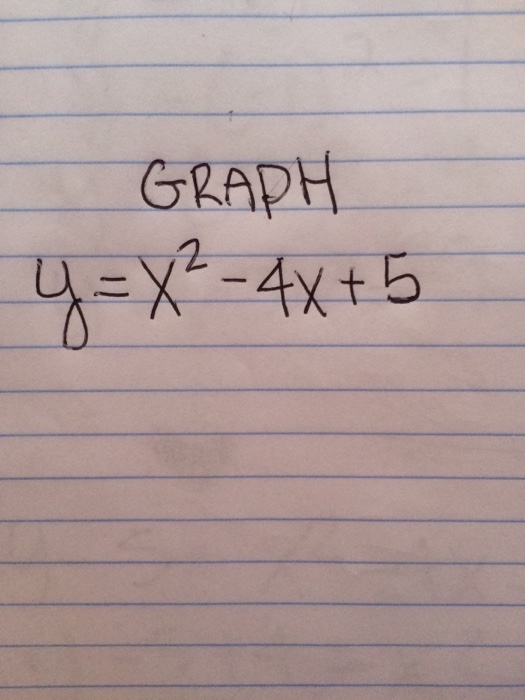 GRAPH
y = x² - 4x + 5